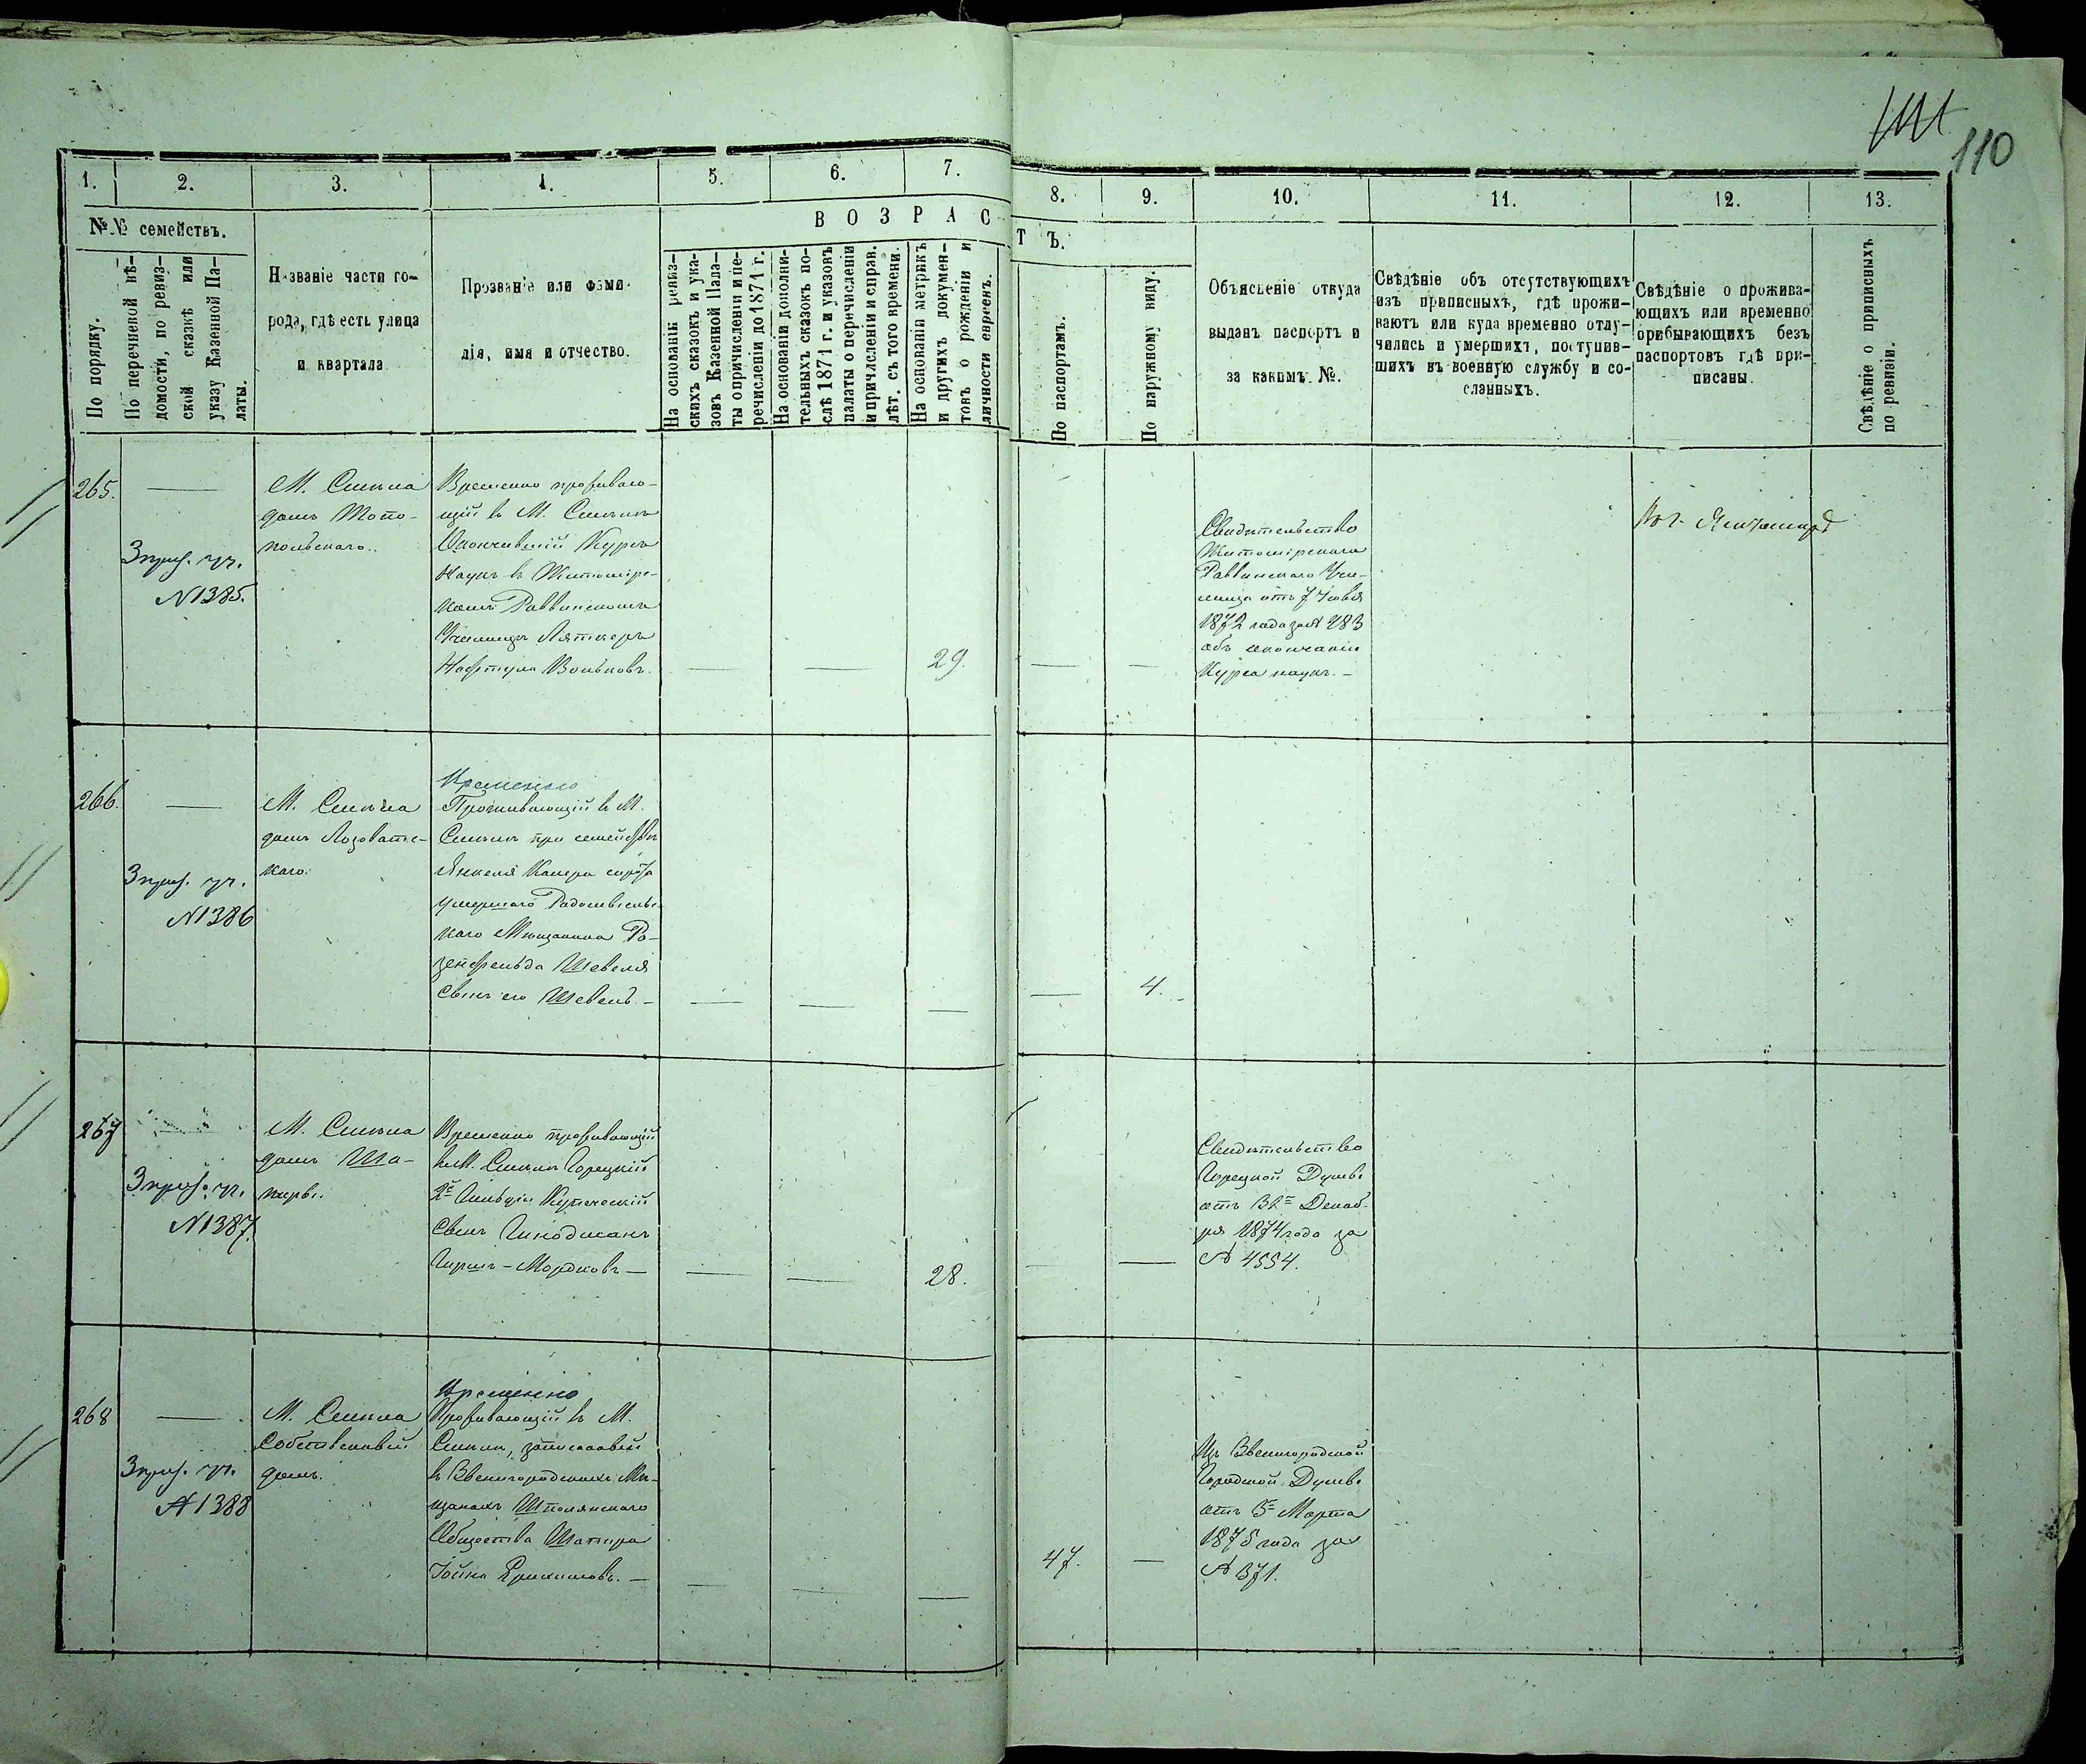 110
1.
2.
3.
4.
5.
6.
7.
8.
9.
10.
11.
12.
13.
№№ семействъ.
По порядку.
По перечневой вѣ-
домости, по ревиз-
ской сказкѣ или
указу Казенной Па-
латы.
Названіе части го-
рода, гдѣ есть улица
и квартала
Прозваніе или фами-
лія, имя и отчество.
ВОЗРАС
ТЪ.
На основаніи ревиз-
скихъ сказокъ и ука-
зовъ Казенной Пала-
ты о причисленіи и пе-
речисленіи до 1871 г.
На основаніи дополни-
тельныхъ сказокъ по-
слѣ 1871 г. и указовъ
палаты о перечисленіи
и причисленіи и справ.
лѣт. съ того времени.
На основаніи метрикъ
и другихъ докумен-
товъ о рожденіи и
личности евреевъ.
По паспортамъ.
По наружному виду.
Объясненіе откуда
выданъ паспортъ и
за какимъ №.
Свѣдѣніе объ отсутствующихъ
изъ приписныхъ, гдѣ прожи-
ваютъ или куда временно отлу-
чились и умершихъ, поступив-
шихъ въ военную службу и со-
сланныхъ.
Свѣдѣніе о прожива-
ющихъ или временно
прибывающихъ безъ
паспортовъ гдѣ при-
писаны.
Свѣдѣніе о приписныхъ
по ревизіи.
265.
№1385.
М. Смѣла
домъ Топо-
польскаго.
Временно прожываю-
щій въ М. Смѣлѣ
Окончившій Курсъ
Наукъ въ Житомірс-
комъ Раввинскомъ
Училищѣ Ляткеръ
Нафтула Вольковъ.
29.
Свидѣтельство
Житомірскаго
Раввинскаго Учи-
лища отъ 7 Іюля
1872 года за № 283
объ окончаніи
Курса наукъ.
266.
№1386
М. Смѣла
домъ Лозоватс-
каго.
Временно
Проживающій въ М.
Смѣлѣ при семействѣ
Янкеля
умершаго Радомысльс-
каго Мѣщанина Ро-
зенфельда Шевеля
сынъ его Шевель.
4.
267
№1387.
М. Смѣла
домъ Ша-
Временно прожывающій
въ М. Смѣлѣ Горецкій
2й Гильдіи Купеческій
сынъ Гинодманъ
Гиршъ-Мордковъ
28.
Свидѣтельство
Горецкой Думы
отъ Декаб-
ря 1874 года за
№ 4554.
268
№1388
М. Смѣла
собственный
домъ.
Временно
Прожывающій въ М.
Смѣлѣ, записанный
въ Звенигородскихъ Мѣ-
щанахъ Шполянскаго
Общества Шапира
47.
Изъ Звенигородской
Городской Думы
отъ 3го Марта
1875 года за
№ 371.